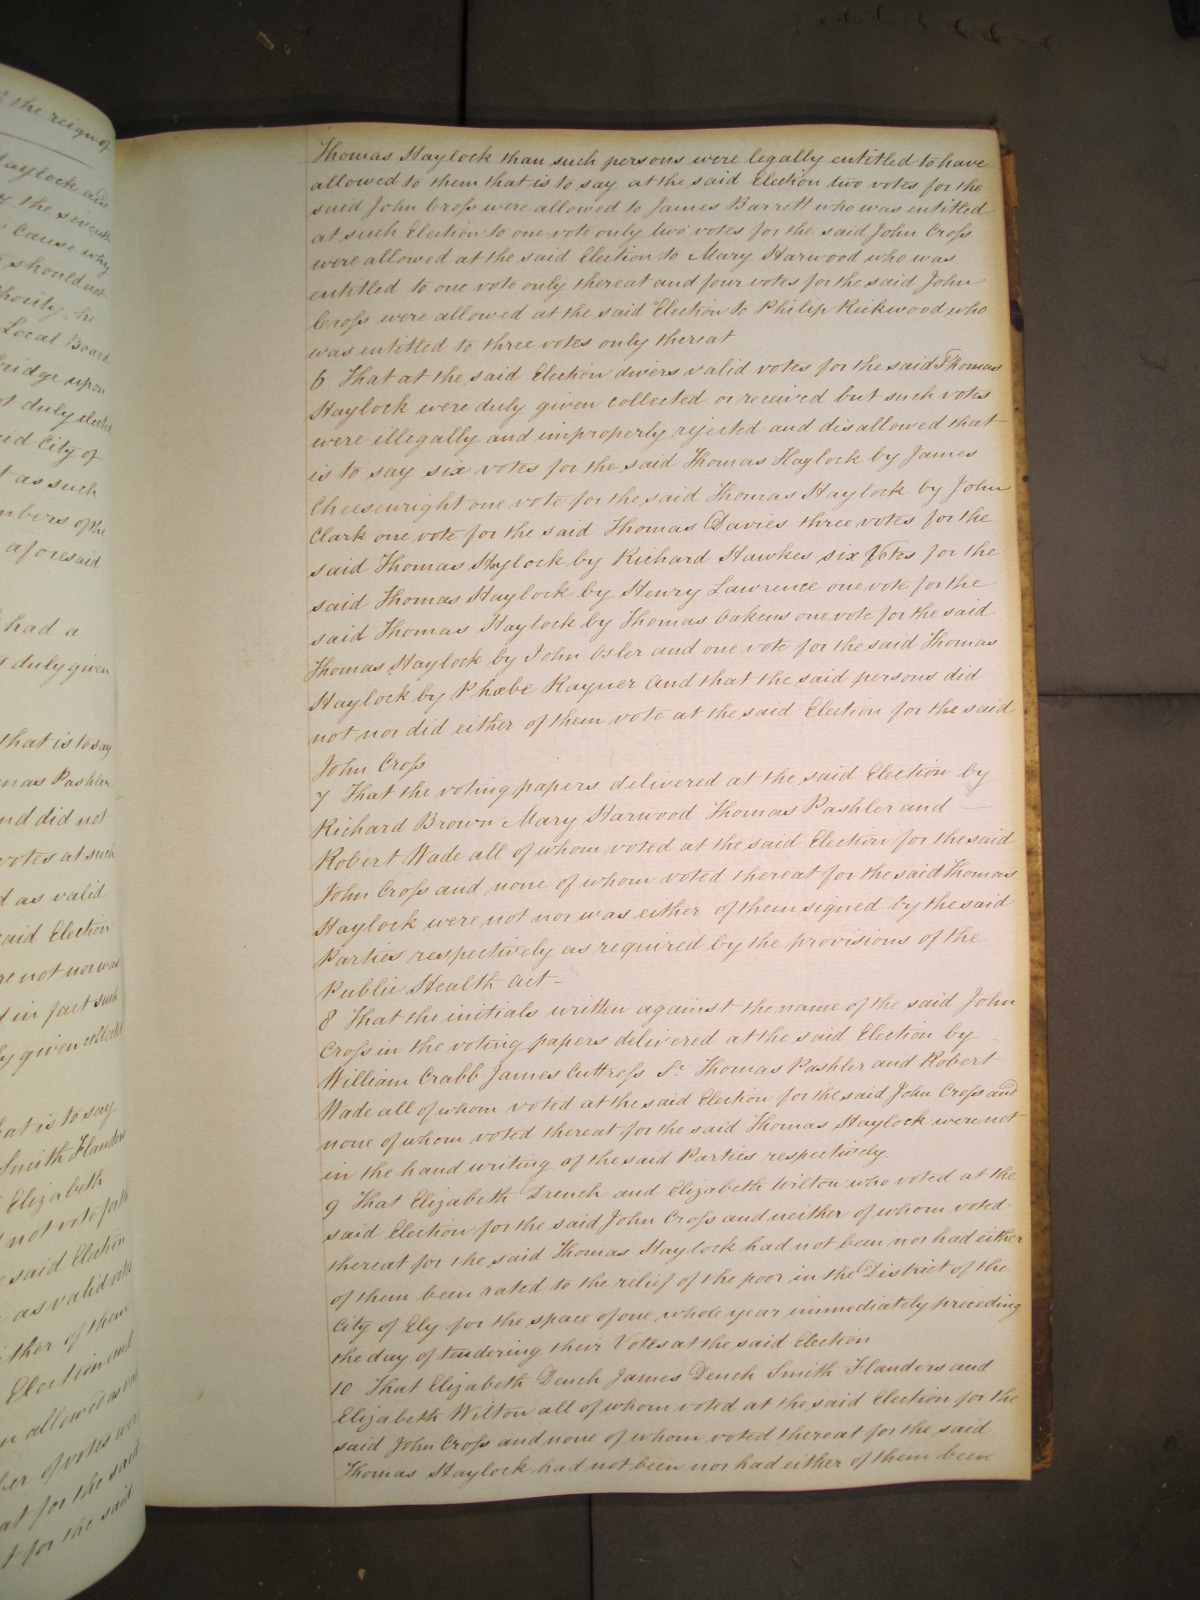 Thomas Haylock than such persons were legally entitled to have
allowed to them that is to say at the said Election two votes for the
said John Cross were allowed to James Barrett who was entitled
at such Election to one vote only two votes for the said John Cross
were allowed at the said Election to Mary Harwood who was
entitled to one vote only thereat and four votes for the said John
Cross were allowed at the said Election to Philip Kickwood who
was entitled to three votes only thereat
6 That at the said Election divers valid votes for the said Thomas
Haylock were duly given collected or received but such votes
were illegally and improperly rejected and disallowed that
is to say six votes for the said Thomas Haylock by James
Cheesewright one vote for the said Thomas Haylock by John
Clark one vote for the said Thomas Davies three votes for the
said Thomas Haylock by Richard Hawkes six Votes for the
said Thomas Haylock by Henry Lawrence one vote for the
said Thomas Haylock by Thomas Oakens one vote for the said
Thomas Haylock by John Osler and one vote for the said Thomas
Haylock by Phœbe Rayner And that the said persons did
not nor did either of them vote at the said Election for the said
John Cross
7 That the voting papers delivered at the said Election by
Richard Brown Mary Harwood Thomas Pashler and
Robert Wade all of whom voted at the said Election for the said
John Cross and none of whom voted thereat for the said Thomas
Haylock were not nor was either of them signed by the said
Parties respectively as required by the provisions of the
Public Health Act -
8 That the initials written against the name of the said John
Cross in the voting papers delivered at the said Election by
William Crabb James Cuttress Sr. Thomas Pashler and Robert
Wade all of whom voted at the said Election for the said John Cross and
none of whom voted thereat for the said Thomas Haylock were not
in the hand writing of the said Parties respectively.
9 That Elizabeth Drench and Elizabeth Wilton who voted at the
said Election for the said John Cross and neither of whom voted
thereat for the said Thomas Haylock had not been nor had either
of them been rated to the relief of the poor in the District of the
City of Ely for the space of one whole year immediately preceding
the day of tendering their Votes at the said Election
10 That Elizabeth Dench James Dench Smith Flanders and
Elizabeth Wilton all of whom voted at the said Election for the
said John Cross and none of whom voted thereat for the said
Thomas Haylock had not been nor had either of them been